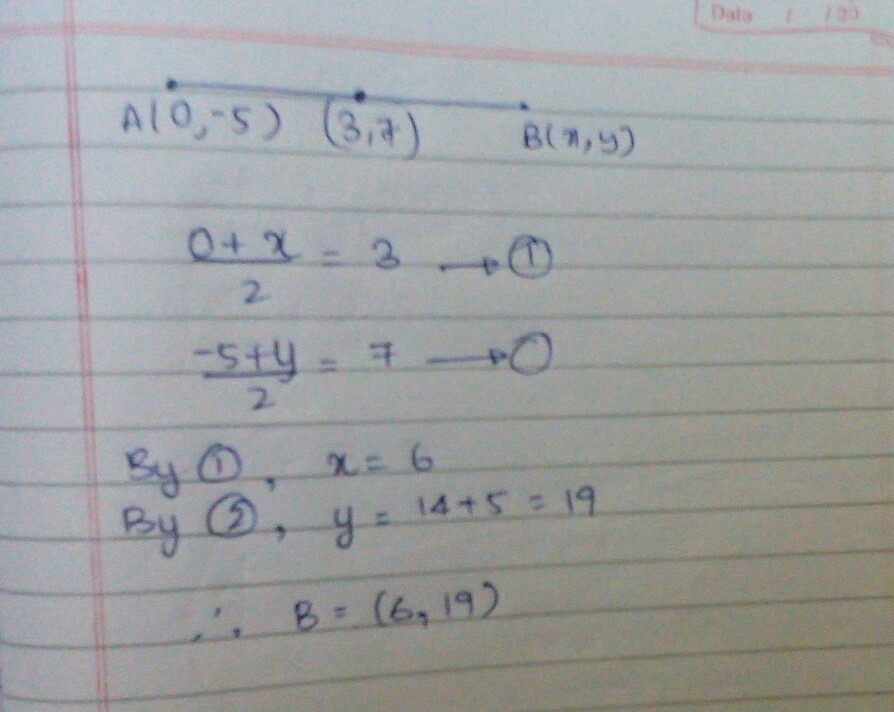 Data / /20
A(0,-5) (3,7) B(x,y)
0+x/2 = 3 → ①
-5+y/2 = 7 → ○
By ①, x = 6
By ②, y = 14+5 = 19
∴ B = (6, 19)